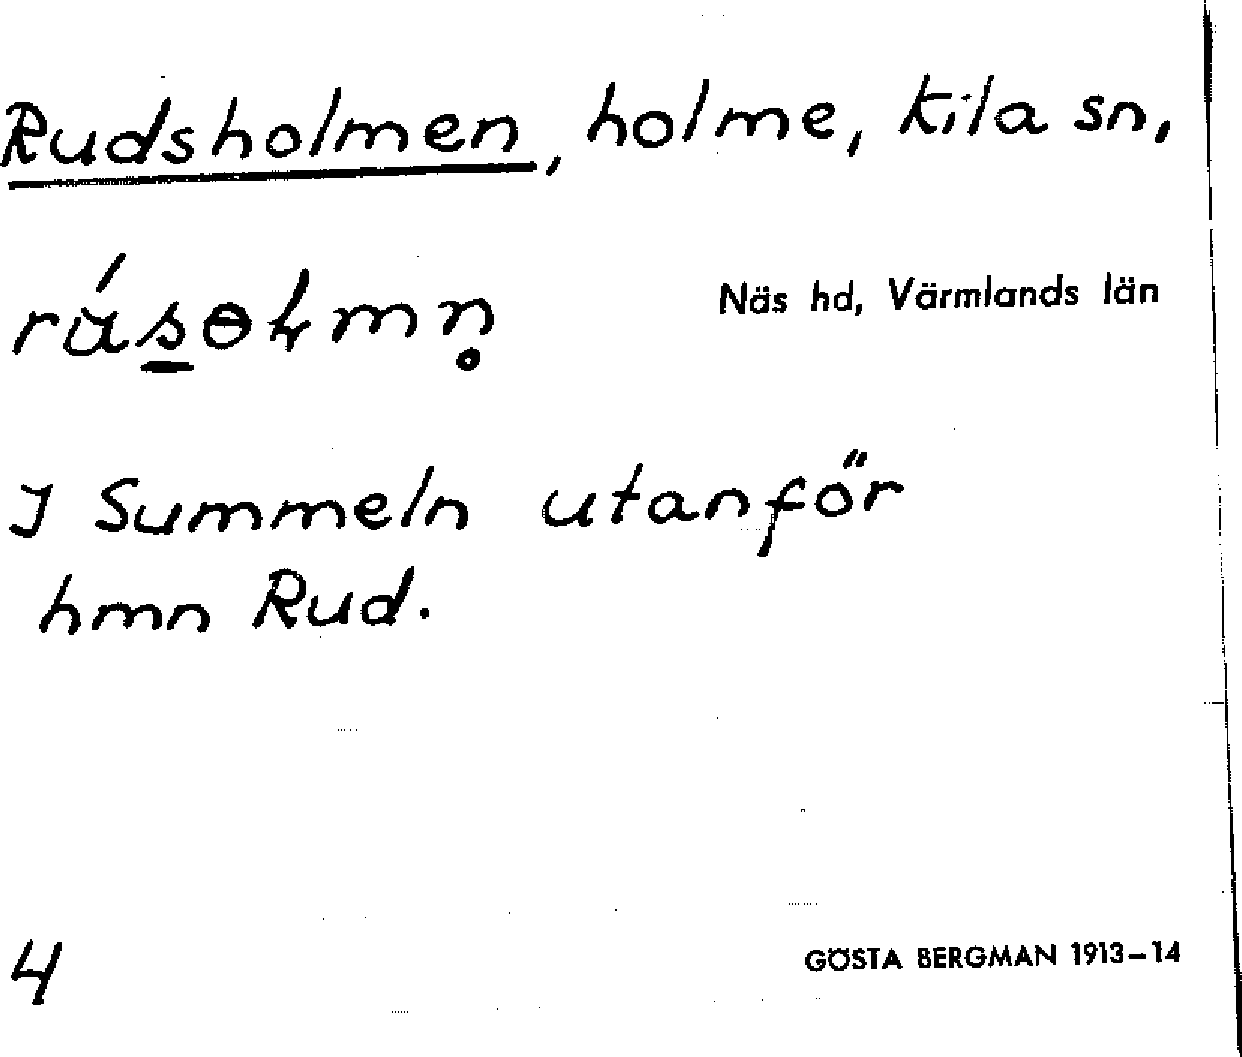 Rudsholmen, holme, Kila sn,
Näs hd, Värmlands län
I Summeln utanför
hmn Rud.
4
GÖSTA BERGMAN 1913–14